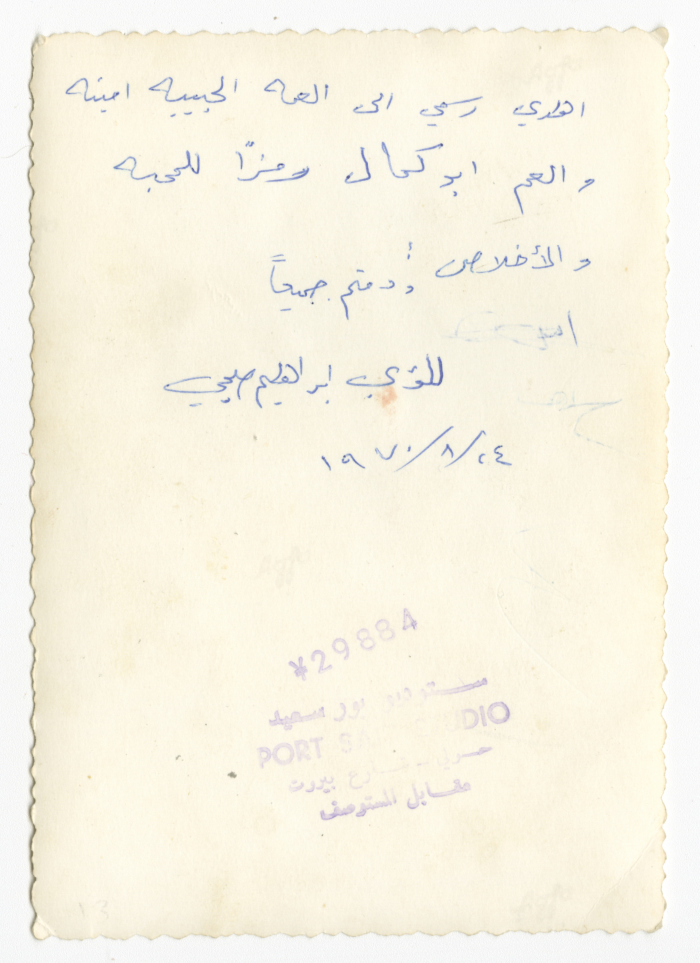 اهدي رسمي الى العمه الحبيبه امينه
والعم ابو كمال رمزًا للمحبه
والأخلاص ودمتم جميعاً
ابراهيم صبحي
١٩٧٠/٨/٢٤
29884
ستوديو بور سعيد
PORT SAID STUDIO
شارع بيروت
مقابل المستوصف